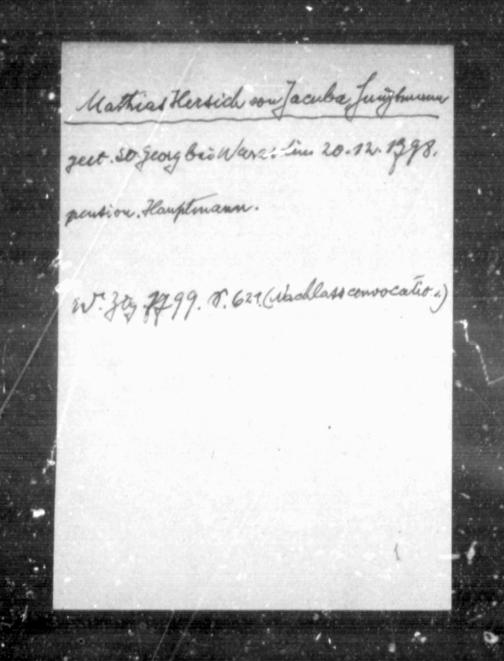 Mathias Hersich von Jacuba Jungbmann
gest. St Georg bei Waras lin 20.12.1798.
pension. Hauptmann.
W. Ztg 1799. S. 621. (Nachlassconvocatio.)